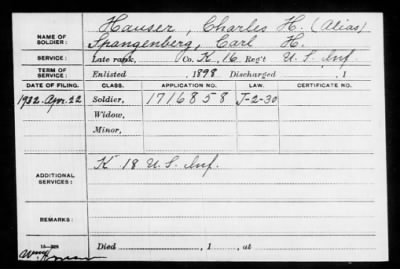 NAME OF SOLDIER: Hauser, Charles H. (Alias)
Spangenberg, Carl H.
SERVICE: Late rank, Co. K, 16 Reg't U. S. Inf.
TERM OF SERVICE: Enlisted , 1898 Discharged , 1
DATE OF FILING. CLASS. APPLICATION NO. LAW. CERTIFICATE NO.
1932. Apr. 22 Soldier, 1716858 J-2-30
Widow,
Minor,
ADDITIONAL SERVICES: K 18 U. S. Inf.
REMARKS:
Died , 1 , at